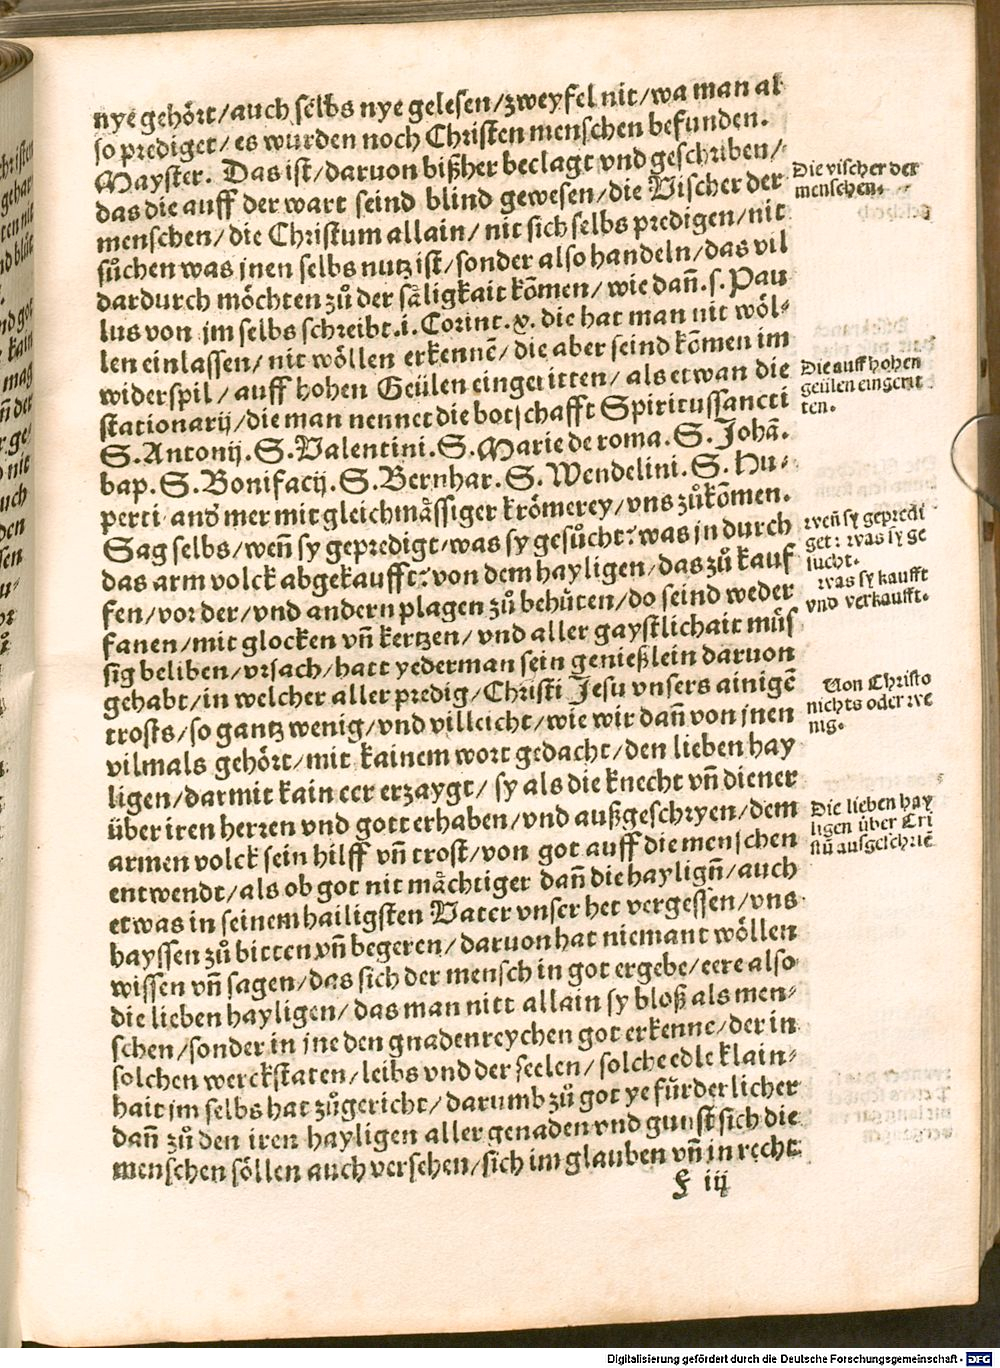 nye gehört/auch selbs nye gelesen/zweyfel nit/wa man al
so prediget/es wurden noch Christen menschen befunden.
Mayster. Das ist/daruon bißher beclagt vnd geschriben/
das die auff der wart seind blind gewesen/die Vischer der
menschen/die Christum allain/nit sich selbs predigen/nit
sůchen was jnen selbs nutz ist/sonder also handeln/das vil
dardurch möchten zů der säligkait kōmen/wie dañ .s. Pau
lus von jm selbs schreibt .i. Corint. x. die hat man nit wöl⸗
len einlassen/nit wöllen erkennē/die aber seind kōmen im
widerspil/auff hohen Geülen eingeritten/als etwan die
stationarij/die man nennet die botschafft Spiritussancti
S. Antonij. S. Valentini. S. Marie de roma. S. Johā.
bap. S. Bonifacij. S. Bernhar. S. Wendelini. S. Hu⸗
perti and mer mit gleichmässiger krömerey/vns zůkōmen.
Sag selbs/weñ sy gepredigt/was sy gesůcht? was jn durch
das arm volck abgekaufft? von dem hayligen/das zů kauf
fen/vor der/vnd andern plagen zů behüten/do seind weder
fanen/mit glocken vñ kertzen/vnd aller gaystlichait müs
sig beliben/vrsach/hatt yederman sein genießlein daruon
gehabt/in welcher aller predig/Christi Jesu vnsers ainigē
trosts/so gantz wenig/vnd villeicht/wie wir dañ von jnen
vilmals gehört/mit kainem wort gedacht/den lieben hay
ligen/darmit kain eer erzaygt/sy als die knecht vñ diener
über iren herren vnd gott erhaben/vnd außgeschryen/dem
armen volck sein hilff vñ trost/von got auff die menschen
entwendt/als ob got nit mächtiger dañ die hayligñ/auch
etwas in seinem hailigsten Vater vnser het vergessen/vns
hayssen zů bitten vñ begeren/daruon hat niemant wöllen
wissen vñ sagen/das sich der mensch in got ergebe/eere also
die lieben hayligen/das man nitt allain sy bloß als men⸗
schen/sonder in jne den gnadenreychen got erkenne/der in
solchen werckstaten/leibs vnd der seelen/solche edle klain⸗
hait jm selbs hat zůgericht/darumb zů got ye fürderlicher
dañ zů den iren hayligen aller genaden vnd gunst sich die
menschen söllen auch versehen/sich im glauben vñ in recht
f iij
Die vischer der
menschen.
Die auff hohen
geülen eingerit
ten.
weñ sy gepredi
get: was sy ge
sucht.
was sy kaufft
vnd verkaufft.
Von Christo
nichts oder we
nig.
Die lieben hay
ligen über Cri
stū ausgeschriē
Digitalisierung gefördert durch die Deutsche Forschungsgemeinschaft - DFG